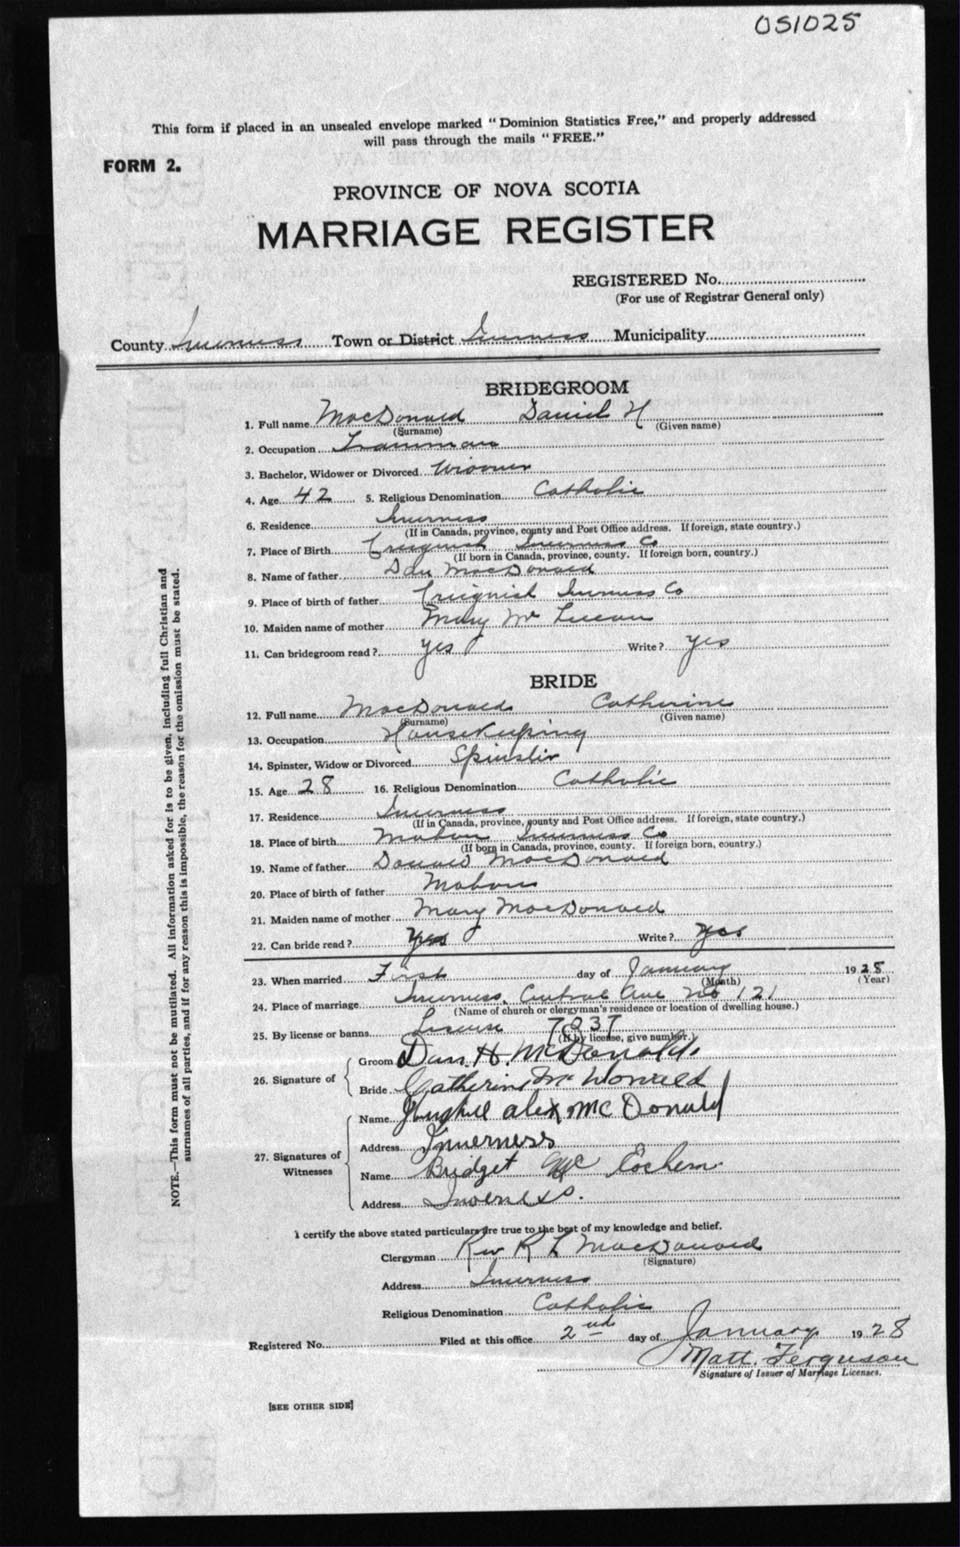 051025
This form if placed in an unsealed envelope marked "Dominion Statistics Free," and properly addressed
will pass through the mails "FREE."
FORM 2.
PROVINCE OF NOVA SCOTIA
MARRIAGE REGISTER
REGISTERED No.
(For use of Registrar General only)
County Inverness Town or District Inverness Municipality
BRIDEGROOM
1. Full name MacDonald Daniel H
(Surname) (Given name)
2. Occupation
3. Bachelor, Widower or Divorced
4. Age 42 5. Religious Denomination Catholic
6. Residence Inverness
(If in Canada, province, county and Post Office address. If foreign, state country.)
7. Place of Birth Creignish Inverness Co
(If born in Canada, province, county. If foreign born, country.)
8. Name of father Dan MacDonald
9. Place of birth of father Creignish Inverness Co
10. Maiden name of mother Mary Mc
11. Can bridegroom read? yes Write? yes
BRIDE
12. Full name MacDonald Catherine
(Surname) (Given name)
13. Occupation Housekeeping
14. Spinster, Widow or Divorced Spinster
15. Age 28 16. Religious Denomination Catholic
17. Residence Inverness
(If in Canada, province, county and Post Office address. If foreign, state country.)
18. Place of birth Mabou Inverness Co
(If born in Canada, province, county. If foreign born, country.)
19. Name of father Donald MacDonald
20. Place of birth of father Mabou
21. Maiden name of mother Mary MacDonald
22. Can bride read? Yes Write? Yes
23. When married First day of January 1928
(Month) (Year)
24. Place of marriage Inverness, Central Ave No 121
(Name of church or clergyman's residence or location of dwelling house.)
25. By license or banns License 7037
(If by license, give number.)
26. Signature of
Groom Dan. H. McDonald
Bride Catherine McDonald
27. Signatures of Witnesses
Name Alex McDonald
Address Inverness
Name Bridget Mc
Address Inverness.
I certify the above stated particulars are true to the best of my knowledge and belief.
Clergyman Rev R L MacDonald
(Signature)
Address Inverness
Religious Denomination Catholic
Registered No. Filed at this office 2nd day of January 1928
Matt. Ferguson
Signature of Issuer of Marriage Licenses.
[SEE OTHER SIDE]
NOTE.—This form must not be mutilated. All information asked for is to be given, including full Christian and
surnames of all parties, and if for any reason this is impossible, the reason for the omission must be stated.